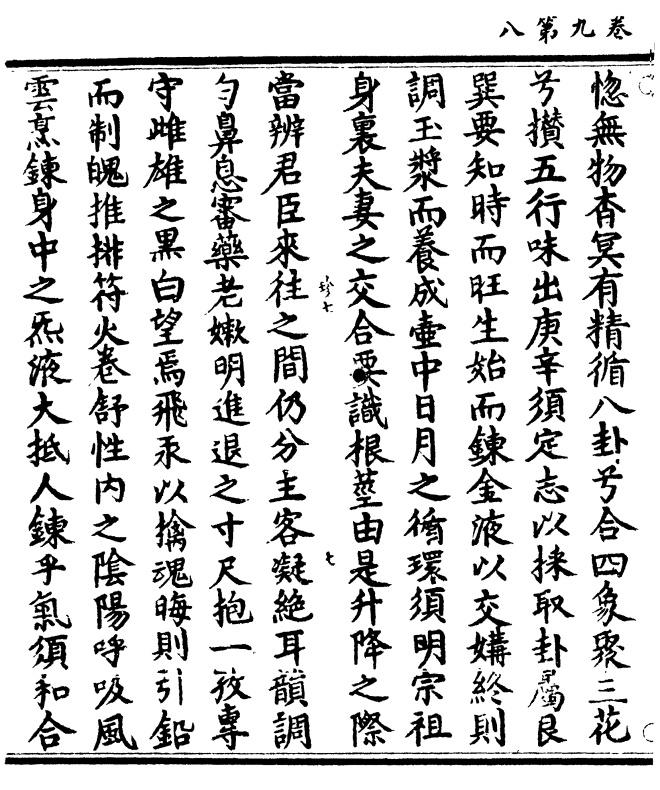 卷九第八
惚無物杳冥有精循八卦兮合四象聚三花
兮攅五行味出庚辛須定志以採取卦屬艮
巽要知時而旺生始而鍊金液以交媾終則
調玉漿而養成壷中日月之循環須明宗祖
身裏夫妻之交合要識根莖由是升降之際
當辨君臣來往之間仍分主客凝絶耳韻調
勻鼻息審藥老嫰明進退之寸尺抱一孜專
守雌雄之黒白望焉飛汞以擒魂晦則引鉛
而制魄推排符火卷舒性内之陰陽呼吸風
雲烹鍊身中之炁液大抵人鍊乎氣須和合